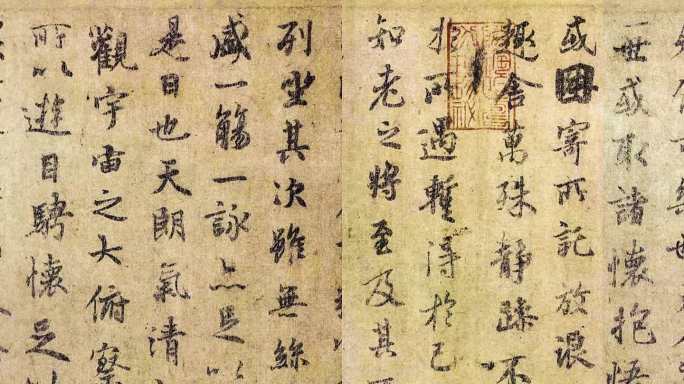 可樂也
世或取諸懷抱悟
或因寄所託放浪
趣舍萬殊靜躁不
於所遇暫得於己
知老之將至及其
列坐其次雖無絲
盛一觴一詠亦足以
是日也天朗氣清
觀宇宙之大俯察
所以遊目騁懷足以